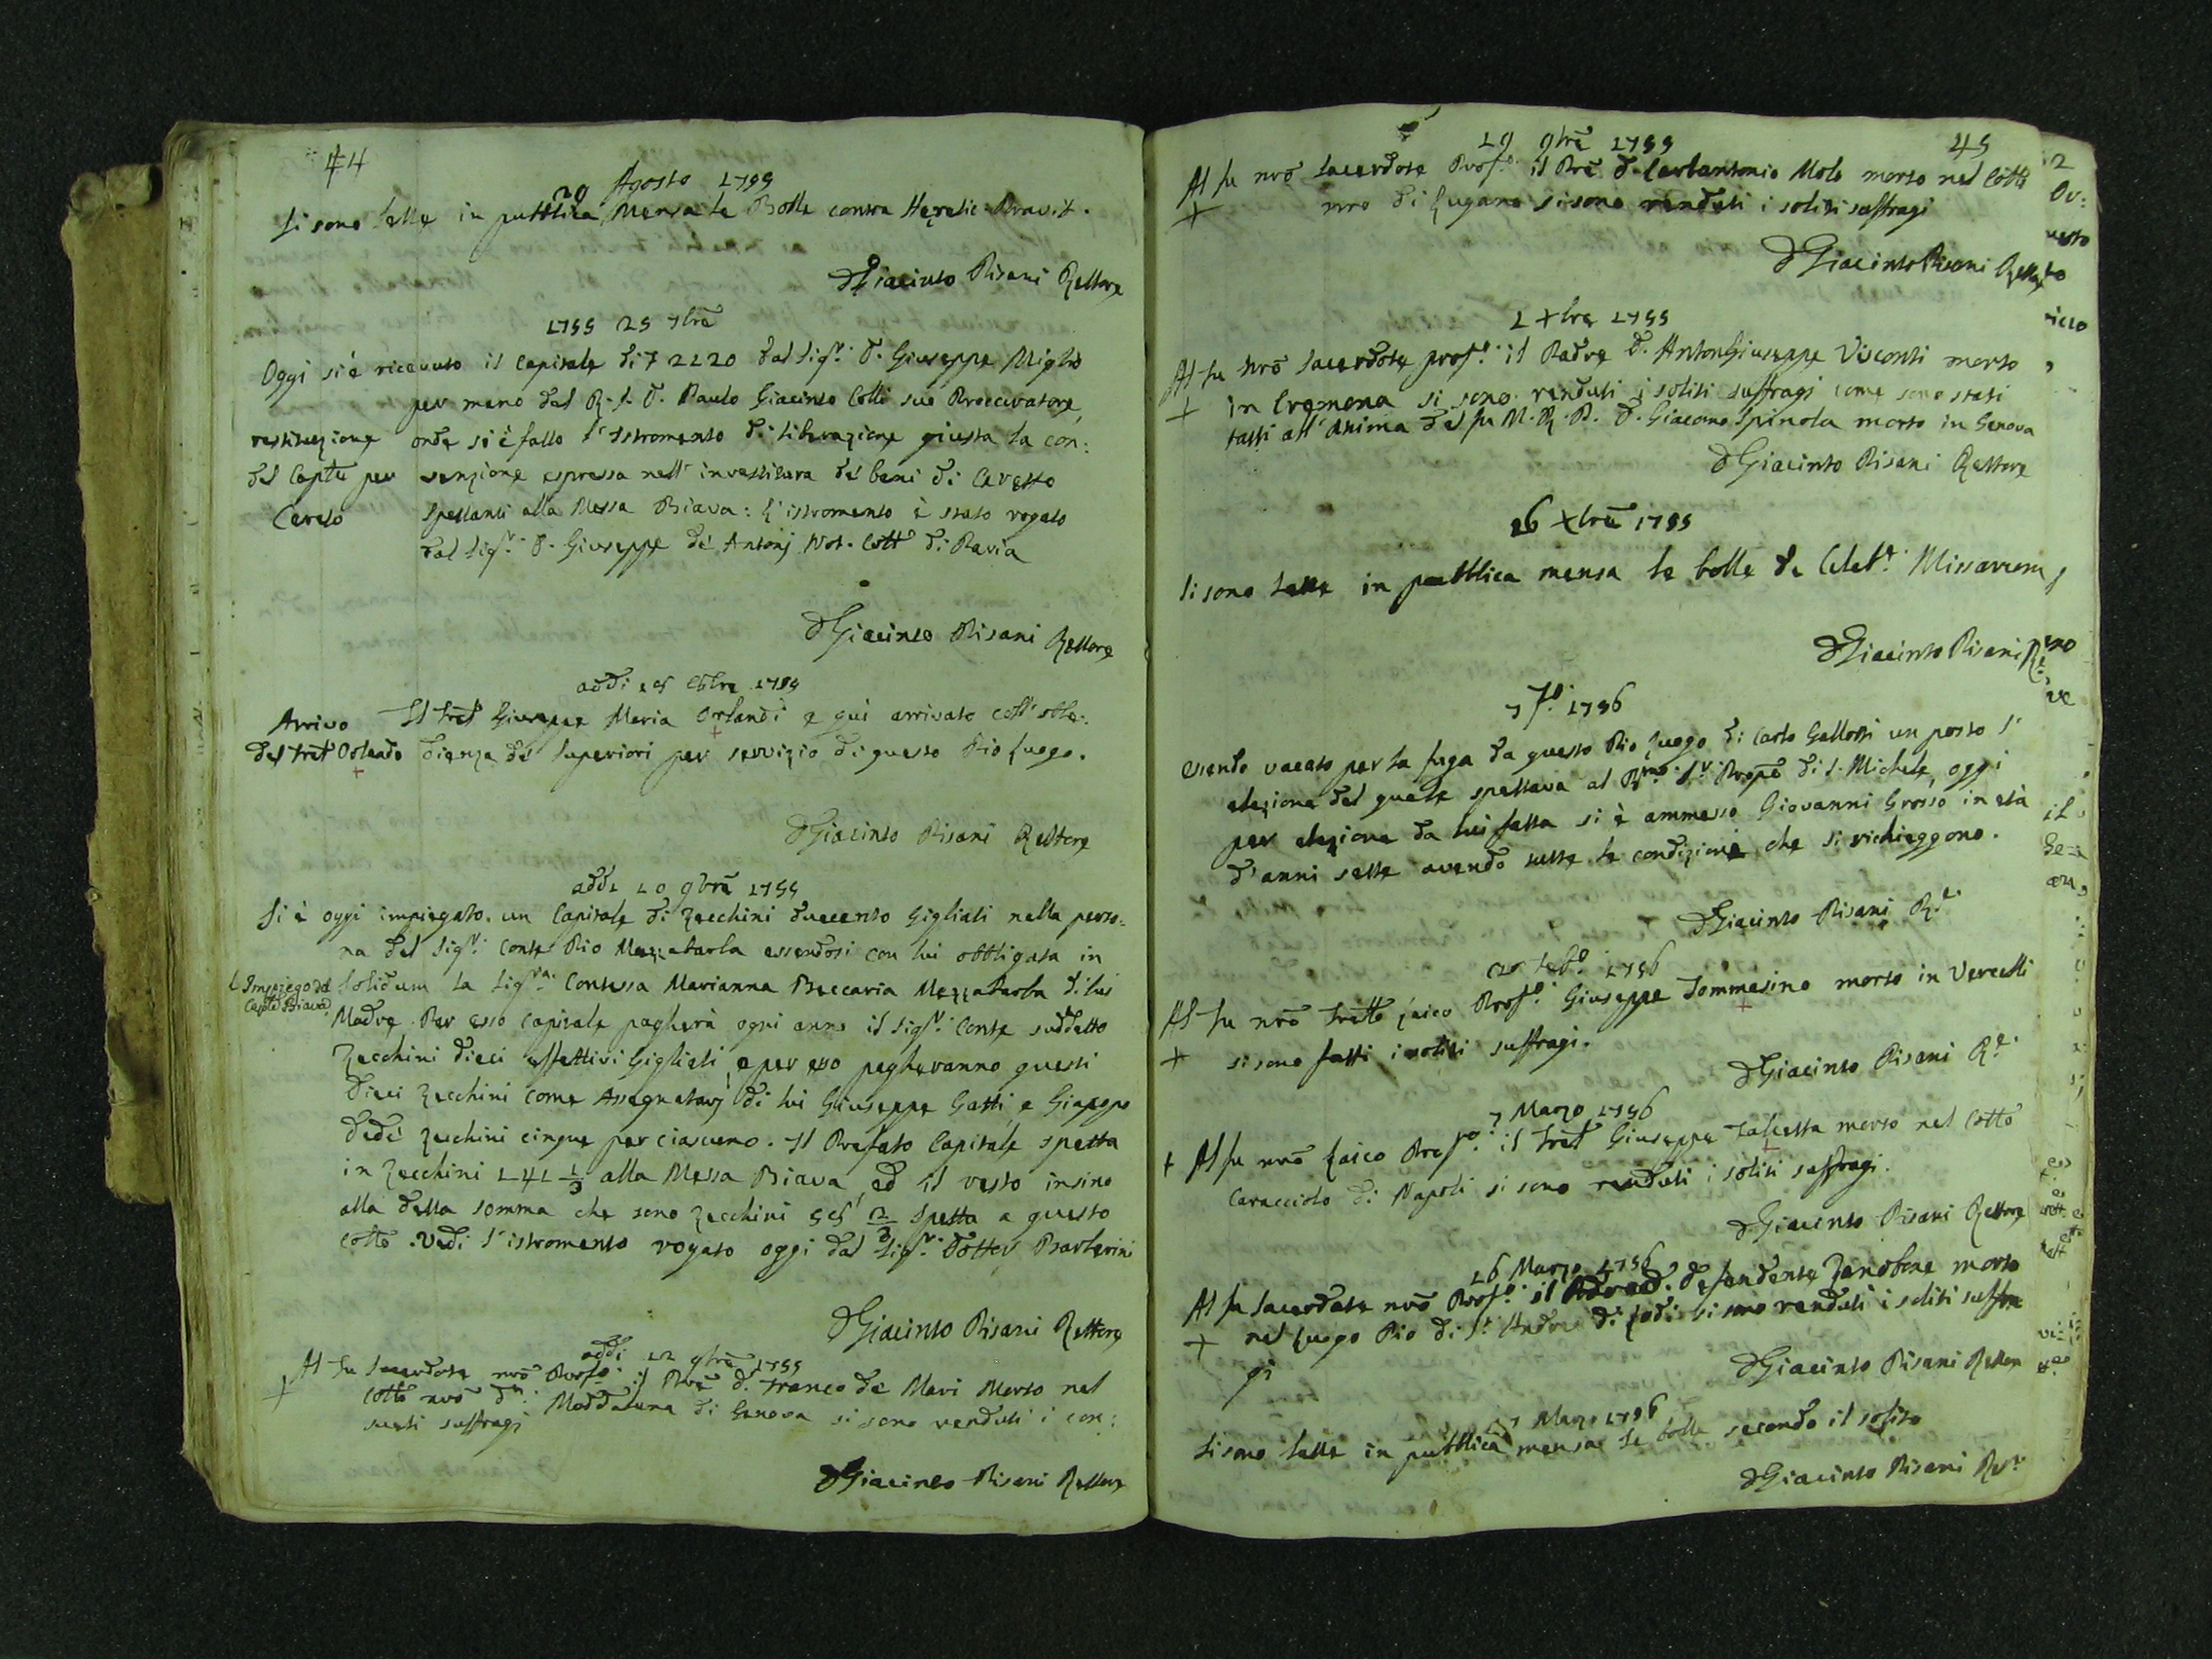 44
29 Agosto 1755
Si sono lette in pubblica Mensa le Bolle contra Heretic. Pravit.
D Giacinto Pisani Rettore
1755 25 7brē
Oggi si è ricevuto il Capitale di 2120 dal Sigr. D. Giuseppe Miglio
per mano del R. S. D. Paulo Giacinto Colli suo Procuratore,
restituzione onde si è fatto l'Istromento di liberazione giusta la con:
del Caple per venzione espressa nell' investitura de' beni di Cavesto
Cereto spettanti alla Messa Biava: L'istromento è stato rogato
dal Sigr. D. Giuseppe de' Antonj Not. Coll. di Pavia
D Giacinto Pisani Rettore
addi 15 8bre 1755
Arrivo Il Frat Giuseppe Maria Orlandi e quì arrivato coll' obbe:
del Frat Orlando dienza de' Superiori per servizio di questo Pio Luogo.
D Giacinto Pisani Rettore
addi 10 9brē 1755
Si è oggi impiegato un Capitale di Zecchini duecento Gigliati nella perso:
na del Sigr. Conte Pio Mezzabarba essendosi con lui obbligata in
Impiego del solidum la Sigra. Contessa Marianna Beccaria Mezzabarba di lui
Caple Biava Madre. Per esso capitale pagherà ogni anno il Sigr. Conte suddetto
Zecchini dieci effettivi Gigliati, e per esso pagheranno questi
dieci Zecchini come Assegnatarj di lui Giuseppe Gatti, e Giapepo
Dedè Zecchini cinque per ciascuno. Il Prefato Capitale spetta
in Zecchini 141 1/3 alla Messa Biava, ed il resto insino
alla detta somma che sono Zecchini 58 2/3 spetta a questo
Collo. Vedi l'istromento rogato oggi dal Sigr. Dottor Barberini
D Giacinto Pisani Rettore
addi 12 9brē 1755
+ Al fu Sacerdote nrō Profo. il Prē D. Franco de Mari Morto nel
Collo nrō di Maddalena di Genova si sono renduti i con:
sueti suffragj
D Giacinto Pisani Rettore
45
19 9brē 1755
Al fu nrō Sacerdote Profo. il Prē D. Carlantonio Molo morto nel Collo
+ nrō di Lugano si sono renduti i soliti suffragi
D Giacinto Pisani Rettore
1 Xbre 1755
Al fu nrō Sacerdote profo. il Padre D. AntonGiuseppe Visconti morto
+ in Cremona si sono renduti i soliti suffragi come sono stati
fatti all' Anima del fu M. R. P. D. Giacomo Spinola morto in Genova
D Giacinto Pisani Rettore
26 Xbrē 1755
Si sono lette in pubblica mensa le bolle de Celebe. Missarum,
D Giacinto Pisani Re.
1756
Essendo vacato per la fuga da questo Pio Luogo di Carlo Gallotti un posto l'
elezione del quale spettava al Rmo. Sr. Propō di S. Michele, oggi
per elezione da lui fatta si è ammesso Giovanni Grosso in età
d'anni sette avendo tutte le condizioni che si richieggono.
D Giacinto Pisani Re.
Febo. 1756
Al fu nrō Frāllo Laico Profo. Giuseppe Tommasino morto in Vercelli
+ si sono fatti i soliti suffragi.
D Giacinto Pisani Re.
7 Marzo 1756
+ Al fu nrō Laico Profo. il Frat Giuseppe Falcetta morto nel Collo
Caracciolo di Napoli si sono renduti i soliti suffragi.
D Giacinto Pisani Rettore
16 Marzo 1756
Al fu Sacerdote nrō Profo. il Padre D. Defendente Zanobone morto
+ nel Luogo Pio di St. Andrea di Lodi si sono renduti i soliti suffra
gi
D Giacinto Pisani Rettore
Marzo 1756
Si sono lette in pubblica mensa le bolle secondo il solito
D Giacinto Pisani Re.